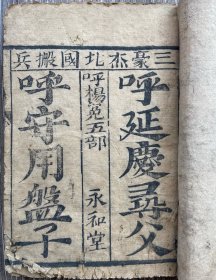 三豪杰北國搬兵
呼延慶尋父
呼楊范五部
永和堂
呼守用盤子